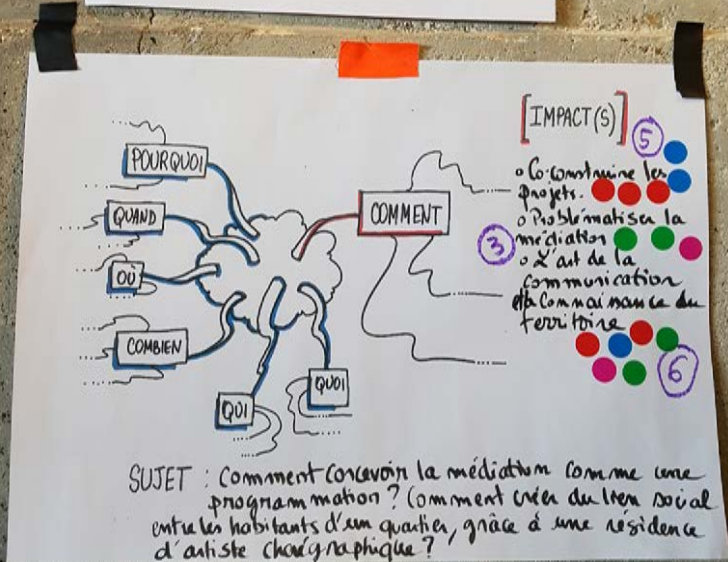 POURQUOI
QUAND
OÙ
COMBIEN
QUI
QUOI
COMMENT
[IMPACT(S)]
5
o Co-construire les
projets.
o Problématiser la
médiation
3
o L'art de la
communication
et la Connaissance du
territoire
6
SUJET : Comment concevoir la médiation comme une
programmation ? Comment créer du lien social
entre les habitants d'un quartier, grâce à une résidence
d'artiste chorégraphique ?